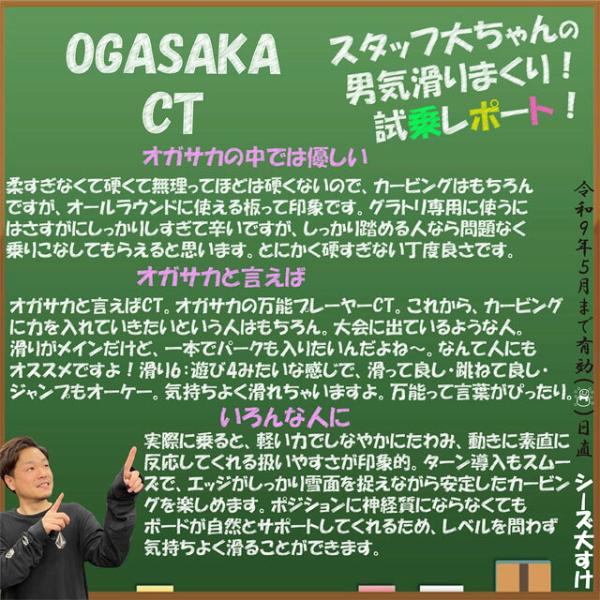 OGASAKA
CT
スタッフ大ちゃんの
男気滑りまくり！
試乗レポート！
オガサカの中では優しい
柔すぎなくて硬くて無理ってほどは硬くないので、カービングはもちろん
ですが、オールラウンドに使える板って印象です。グラトリ専用に使うに
はさすがにしっかりしすぎて辛いですが、しっかり踏める人なら問題なく
乗りこなしてもらえると思います。とにかく硬すぎない丁度良さです。
オガサカと言えば
オガサカと言えばCT。オガサカの万能プレーヤーCT。これから、カービング
に力を入れていきたいという人はもちろん。大会に出ているような人。
滑りがメインだけど、一本でパークも入りたいんだよね～。なんて人にも
オススメですよ！滑り6：遊び4みたいな感じで、滑って良し・跳ねて良し・
ジャンプもオーケー。気持ちよく滑れちゃいますよ。万能って言葉がぴったり。
いろんな人に
実際に乗ると、軽い力でしなやかにたわみ、動きに素直に
反応してくれる扱いやすさが印象的。ターン導入もスムー
ズで、エッジがしっかり雪面を捉えながら安定したカービン
グを楽しめます。ポジションに神経質にならなくても
ボードが自然とサポートしてくれるため、レベルを問わず
気持ちよく滑ることができます。
令和9年5月まで有効（）日直
シーズ大すけ